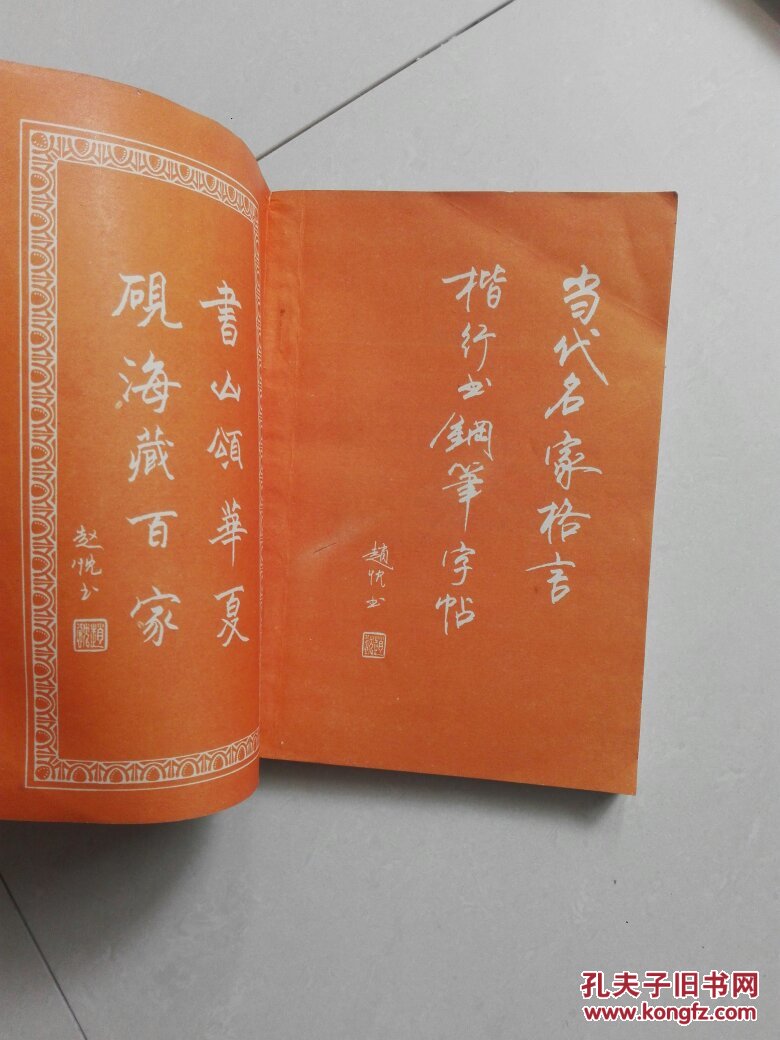 書山頌華夏
硯海藏百家
赵悦书
当代名家格言
楷行书鋼筆字帖
趙悦书
孔夫子旧书网
www.kongfz.com